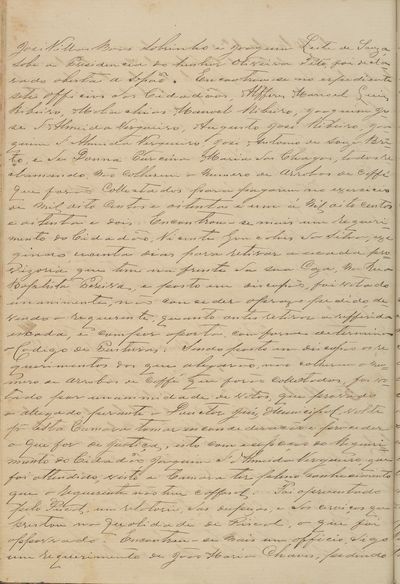 José Villas Boas Sobrinho e Joaquim Leite de Souza
sobe a Presidencia do Senhor Oliveira Netto, foi decla-
rado aberta a Sessão. Encontrou-se no expediente
sete officios dos Cidadãos, Alferes Manoel Luis
Ribeiro, Malachias Manoel Ribeiro, Joaquim Jo-
se d'Almeida Vergueiro, Augusto José Ribeiro, Joa
quim d'Almeida Vergueiro, José Antonio de Souza Brit-
to, e de Donna Turcina Maria das Chagas, todos re
clamando, não colherem o numero de Arrobas de Caffé
que foram Collectados para pagarem no exercicio
de Mil oito Centos e oitenta e um á Mil oito centos
e oitenta e dois. Encontrou-se mais um requeri-
mento do Cidadão, Vicente
zenta dias para retirar a escada pro
vizoria que tem na frente da sua Caza, na Rua
Baptista Pereira, e posto em discução, foi votado
unanimente, não conceder o prazo pedido de
vendo o requerente, quanto antes retirar a refferida
escada, e cumprir a postura conforme determina
o Codigo de Posturas. Sendo posto em discução os re
querimentos dos que alegavão, não colherem o nu-
mero de arrobas de Caffé que forão collectados, foi vo-
tado por unanimidade de votos, que provado
o allegado perante o Doutor Juiz Municipal, volte
p.ª esta Camara tomar em consideração e proceder
o que for de justiça, isto com excepção do Requeri-
mento do Cidadão Joaquim d'Almeida Vergueiro, que
foi attendido, visto a Camara ter pleno conhecimento
que o requerente não tem Caffesal. Foi apresentado
pelo Fiscal, um relatorio das despezas, e dos serviços que
prestou na qualidade de Fiscal, o que foi
approvado. Encontrou-se mais um officio, digo
um requerimento de João Maria Chaves, pedindo